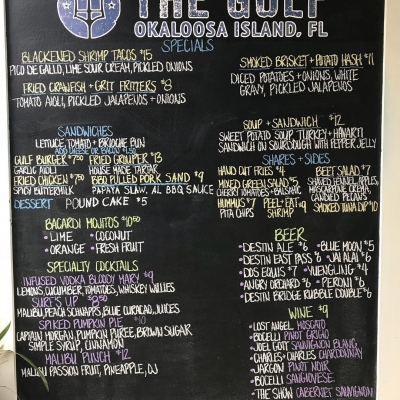 THE GULF
OKALOOSA ISLAND, FL
SPECIALS
BLACKENED SHRIMP TACOS $15
PICO DE GALLO, LIME SOUR CREAM, PICKLED ONIONS
FRIED CRAWFISH + GRIT FRITTERS $8
TOMATO AIOLI, PICKLED JALAPENOS + ONIONS
SMOKED BRISKET + POTATO HASH $11
DICED POTATOES + ONIONS, WHITE
GRAVY, PICKLED JALAPENOS
SOUP + SANDWICH $12
SWEET POTATO SOUP, TURKEY + HAVARTI
SANDWICH ON SOURDOUGH WITH PEPPER JELLY
SANDWICHES
LETTUCE, TOMATO + BRIOCHE BUN
ADD CHEESE OR BACON $1.50
GULF BURGER $7.50 FRIED GROUPER $13
GARLIC AIOLI HOUSE MADE TARTAR
FRIED CHICKEN $7.50 BBQ PULLED PORK SAND $9
SPICY BUTTERMILK PAPAYA SLAW, AL BBQ SAUCE
DESSERT POUND CAKE $5
SHARES + SIDES
HAND CUT FRIES $4 BEET SALAD $7
MIXED GREEN SALAD $5 SHAVED FENNEL, APPLES,
CHERRY TOMATOES + BALSAMIC MASCARPONE CREMA,
HUMMUS $7 PEEL + EAT $9 CANDIED PECANS
PITA CHIPS SHRIMP SMOKED TUNA DIP $10
BACARDI MOJITOS $10.50
• LIME • COCONUT
• ORANGE • FRESH FRUIT
SPECIALTY COCKTAILS
INFUSED VODKA BLOODY MARY $9
LEMONS, CUCUMBER, TOMATOES, WHISKEY WILLIES
SURF'S UP $8.50
MALIBU, PEACH SCHNAPPS, BLUE CURACAO, JUICES
SPIKED PUMPKIN PIE $10
CAPTAIN MORGAN, PUMPKIN PUREE, BROWN SUGAR
SIMPLE SYRUP, CINNAMON
MALIBU PUNCH $12
MALIBU PASSION FRUIT, PINEAPPLE, OJ
BEER
• DESTIN ALE $6 • BLUE MOON $5
• DESTIN EAST PASS $6 • JAI ALAI $6
• DOS EQUIS $7 • YUENGLING $4
• ANGRY ORCHARD $6 • PERONI $6
• DESTIN BRIDGE RUBBLE DOUBLE $6
WINE $9
• LOST ANGEL MOSCATO
• BOCELLI PINOT GRIGIO
• JOEL GOTT SAUVIGNON BLANC
• CHARLES + CHARLES CHARDONNAY
• JARGON PINOT NOIR
• BOCELLI SANGIOVESE
• THE SHOW CABERNET SAUVIGNON